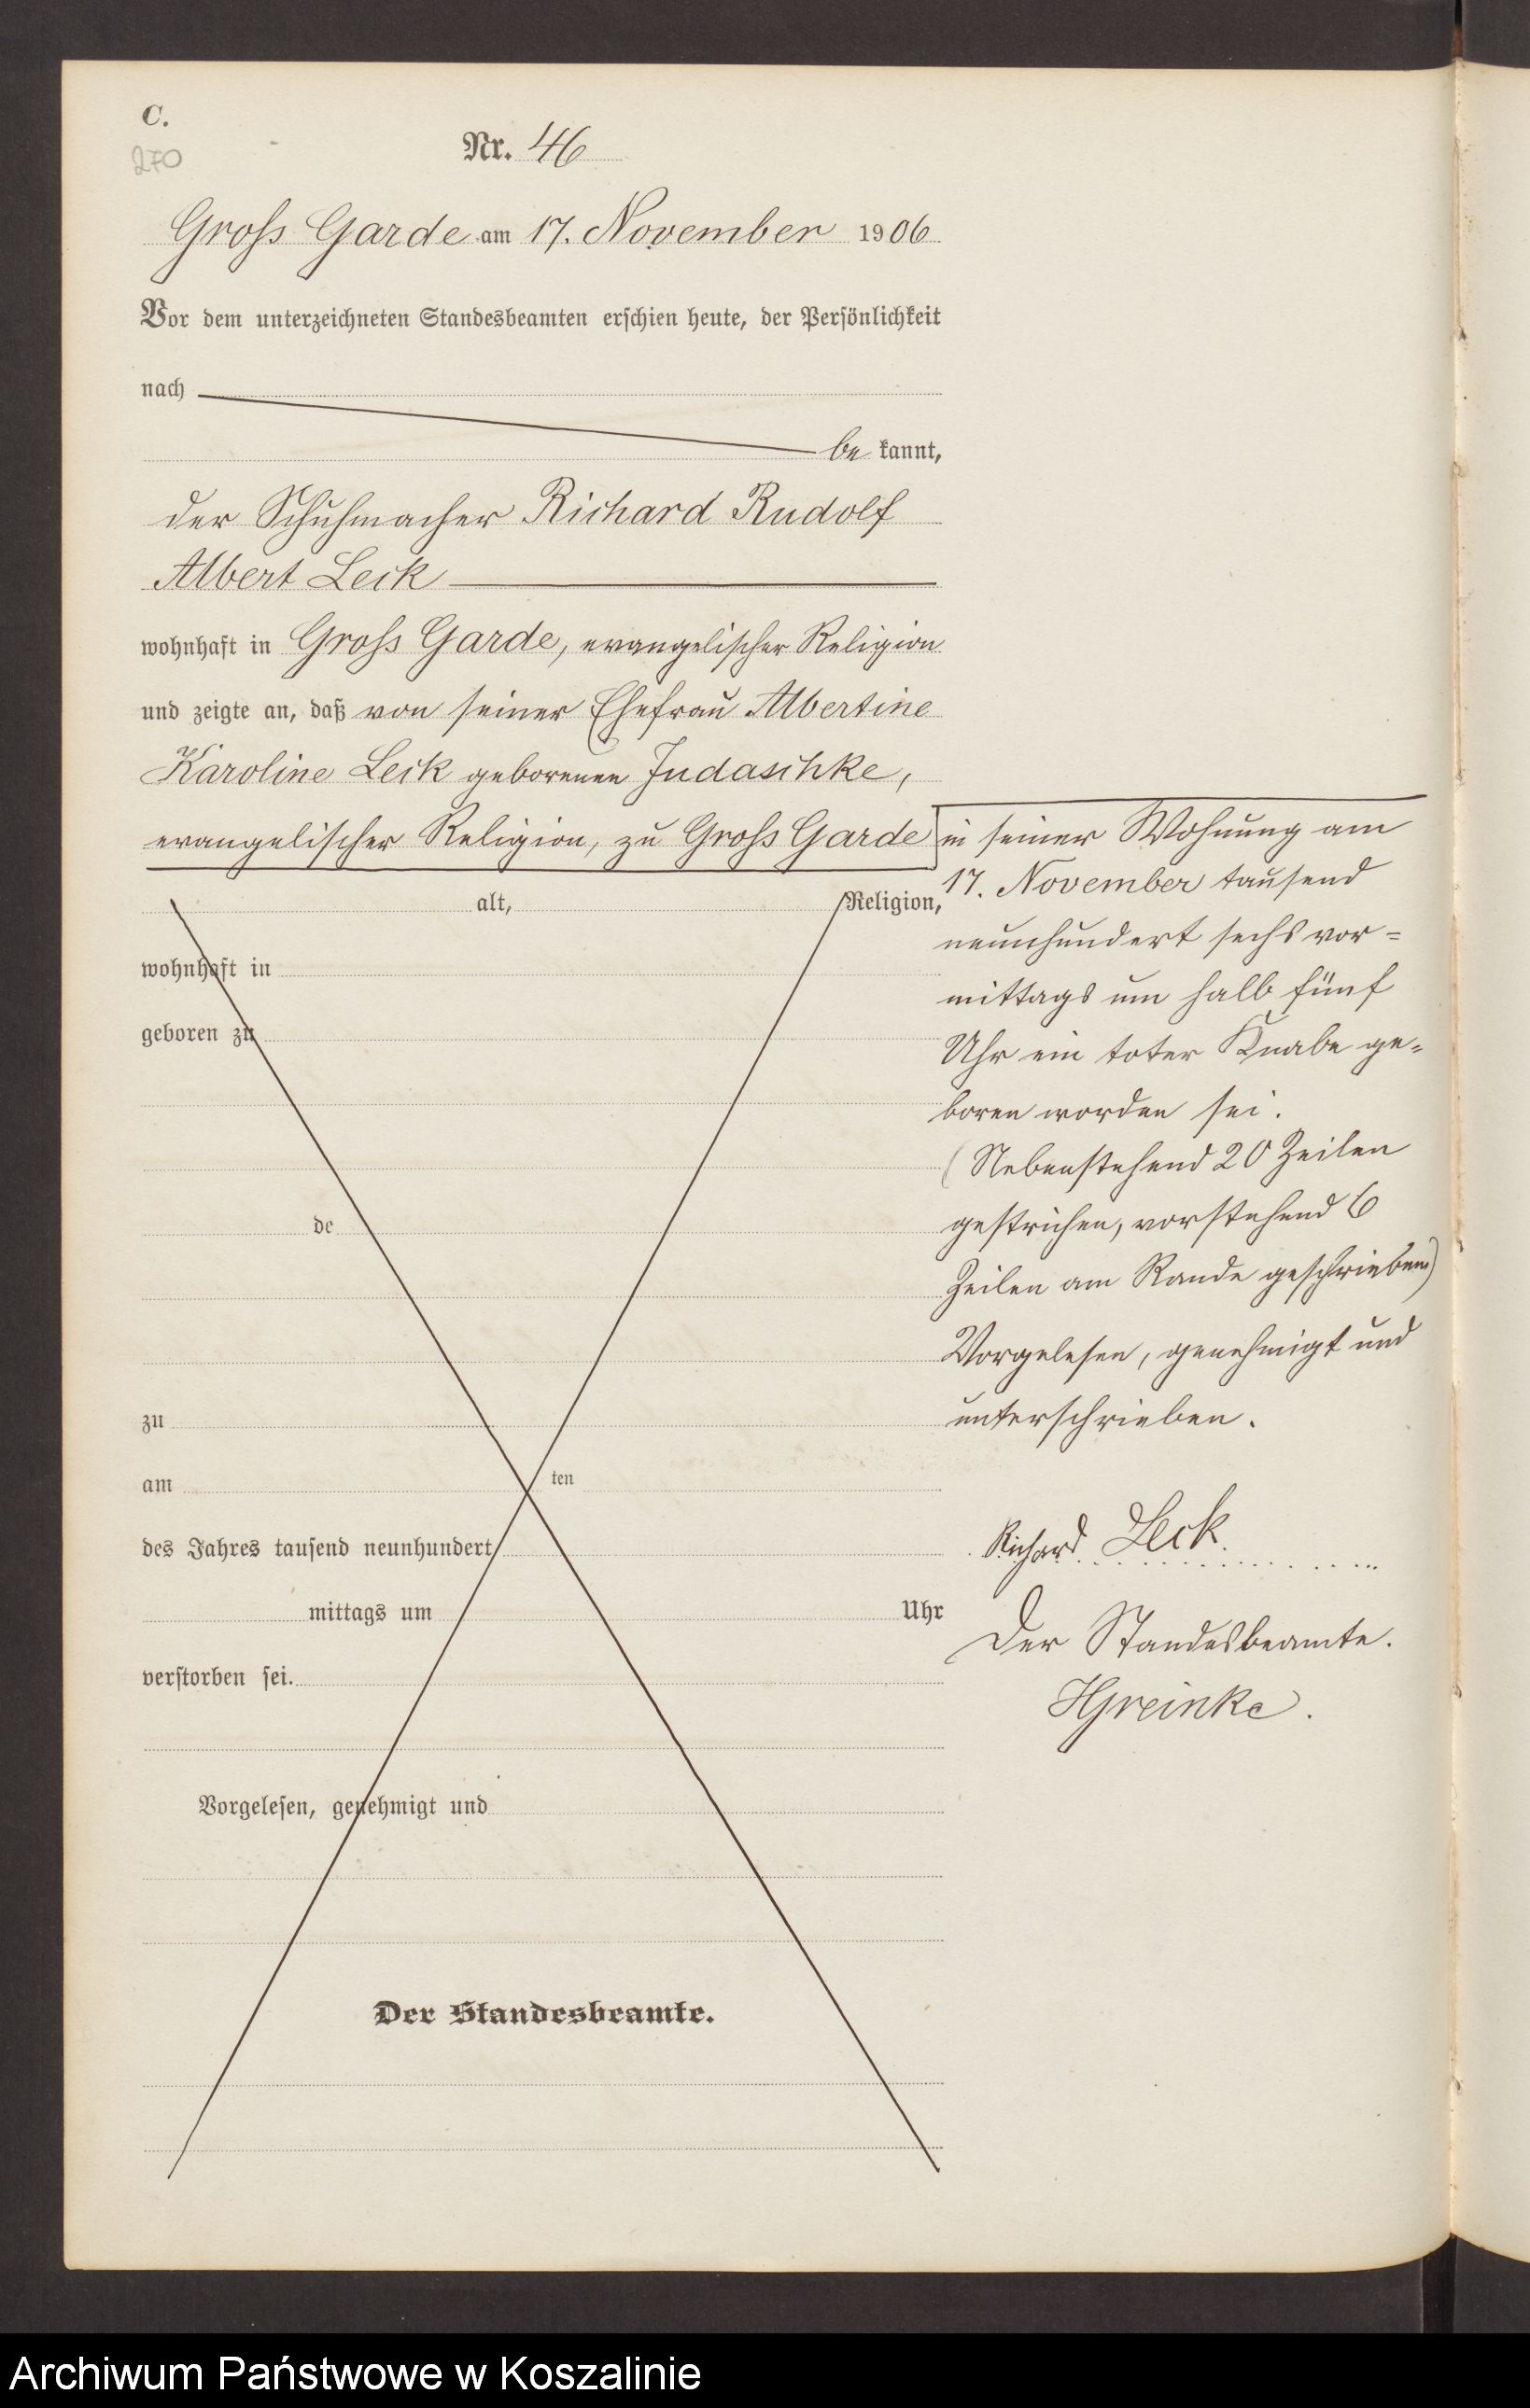 C.
270
Nr. 46
Gross Garde am 17. November 1906
Vor dem unterzeichneten Standesbeamten erschien heute, der Persönlichkeit
nach
be kannt,
der Schuhmacher Richard Rudolf
Albert Leck
wohnhaft in Gross Garde, evangelischer Religion
und zeigte an, daß von seiner Ehefrau Albertine
Karoline Leck geborenen Judaschke,
evangelischer Religion, zu Gross Garde
alt, Religion,
wohnhaft in
geboren zu
de
zu
am ten
des Jahres tausend neunhundert
mittags um Uhr
verstorben sei.
Vorgelesen, genehmigt und
Der Standesbeamte.
in seiner Wohnung am
17. November tausend
neunhundert sechs vor=
mittags um halb fünf
Uhr ein toter Knabe ge=
boren worden sei.
(Nebenstehend 20 Zeilen
gestrichen, vorstehend 6
Zeilen am Rande geschrieben)
Vorgelesen, genehmigt und
unterschrieben.
Richard Leck.
Der Standesbeamte.
HGreinke.
Archiwum Państwowe w Koszalinie